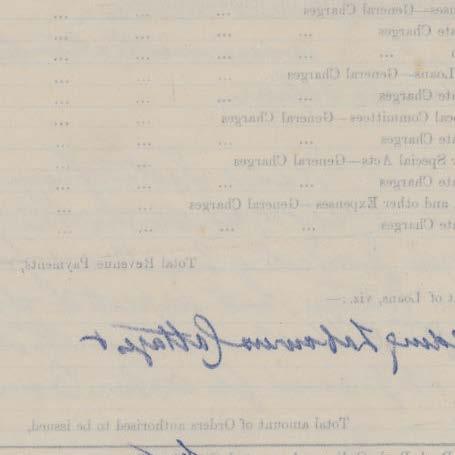 nses—General Charges ... ... ...
ate Charges ... ... ...
... ... ...
Loans—General Charges ... ... ...
ate Charges ... ... ...
ocal Committees—General Charges ... ...
ate Charges ... ... ... ...
r Special Acts—General Charges ... ...
ate Charges ... ... ... ...
and other Expenses—General Charges ... ...
ate Charges ... ... ... ...
Total Revenue Payments,
t of Loans, viz.:—
Labourers Cottages
Total amount of Orders authorised to be issued,